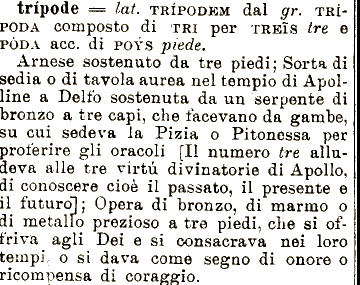 trípode = lat. TRÍPODEM dal gr. TRÍ-
PODA composto di TRI per TREÎS tre e
PÓDA acc. di POÝS piede.
Arnese sostenuto da tre piedi; Sorta di
sedia o di tavola aurea nel tempio di Apol-
line a Delfo sostenuta da un serpente di
bronzo a tre capi, che facevano da gambe,
su cui sedeva la Pizia o Pitonessa per
proferire gli oracoli [Il numero tre allu-
deva alle tre virtú divinatorie di Apollo,
di conoscere cioè il passato, il presente e
il futuro]; Opera di bronzo, di marmo o
di metallo prezioso a tre piedi, che si of-
friva agli Dei e si consacrava nei loro
tempi o si dava come segno di onore o
ricompensa di coraggio.